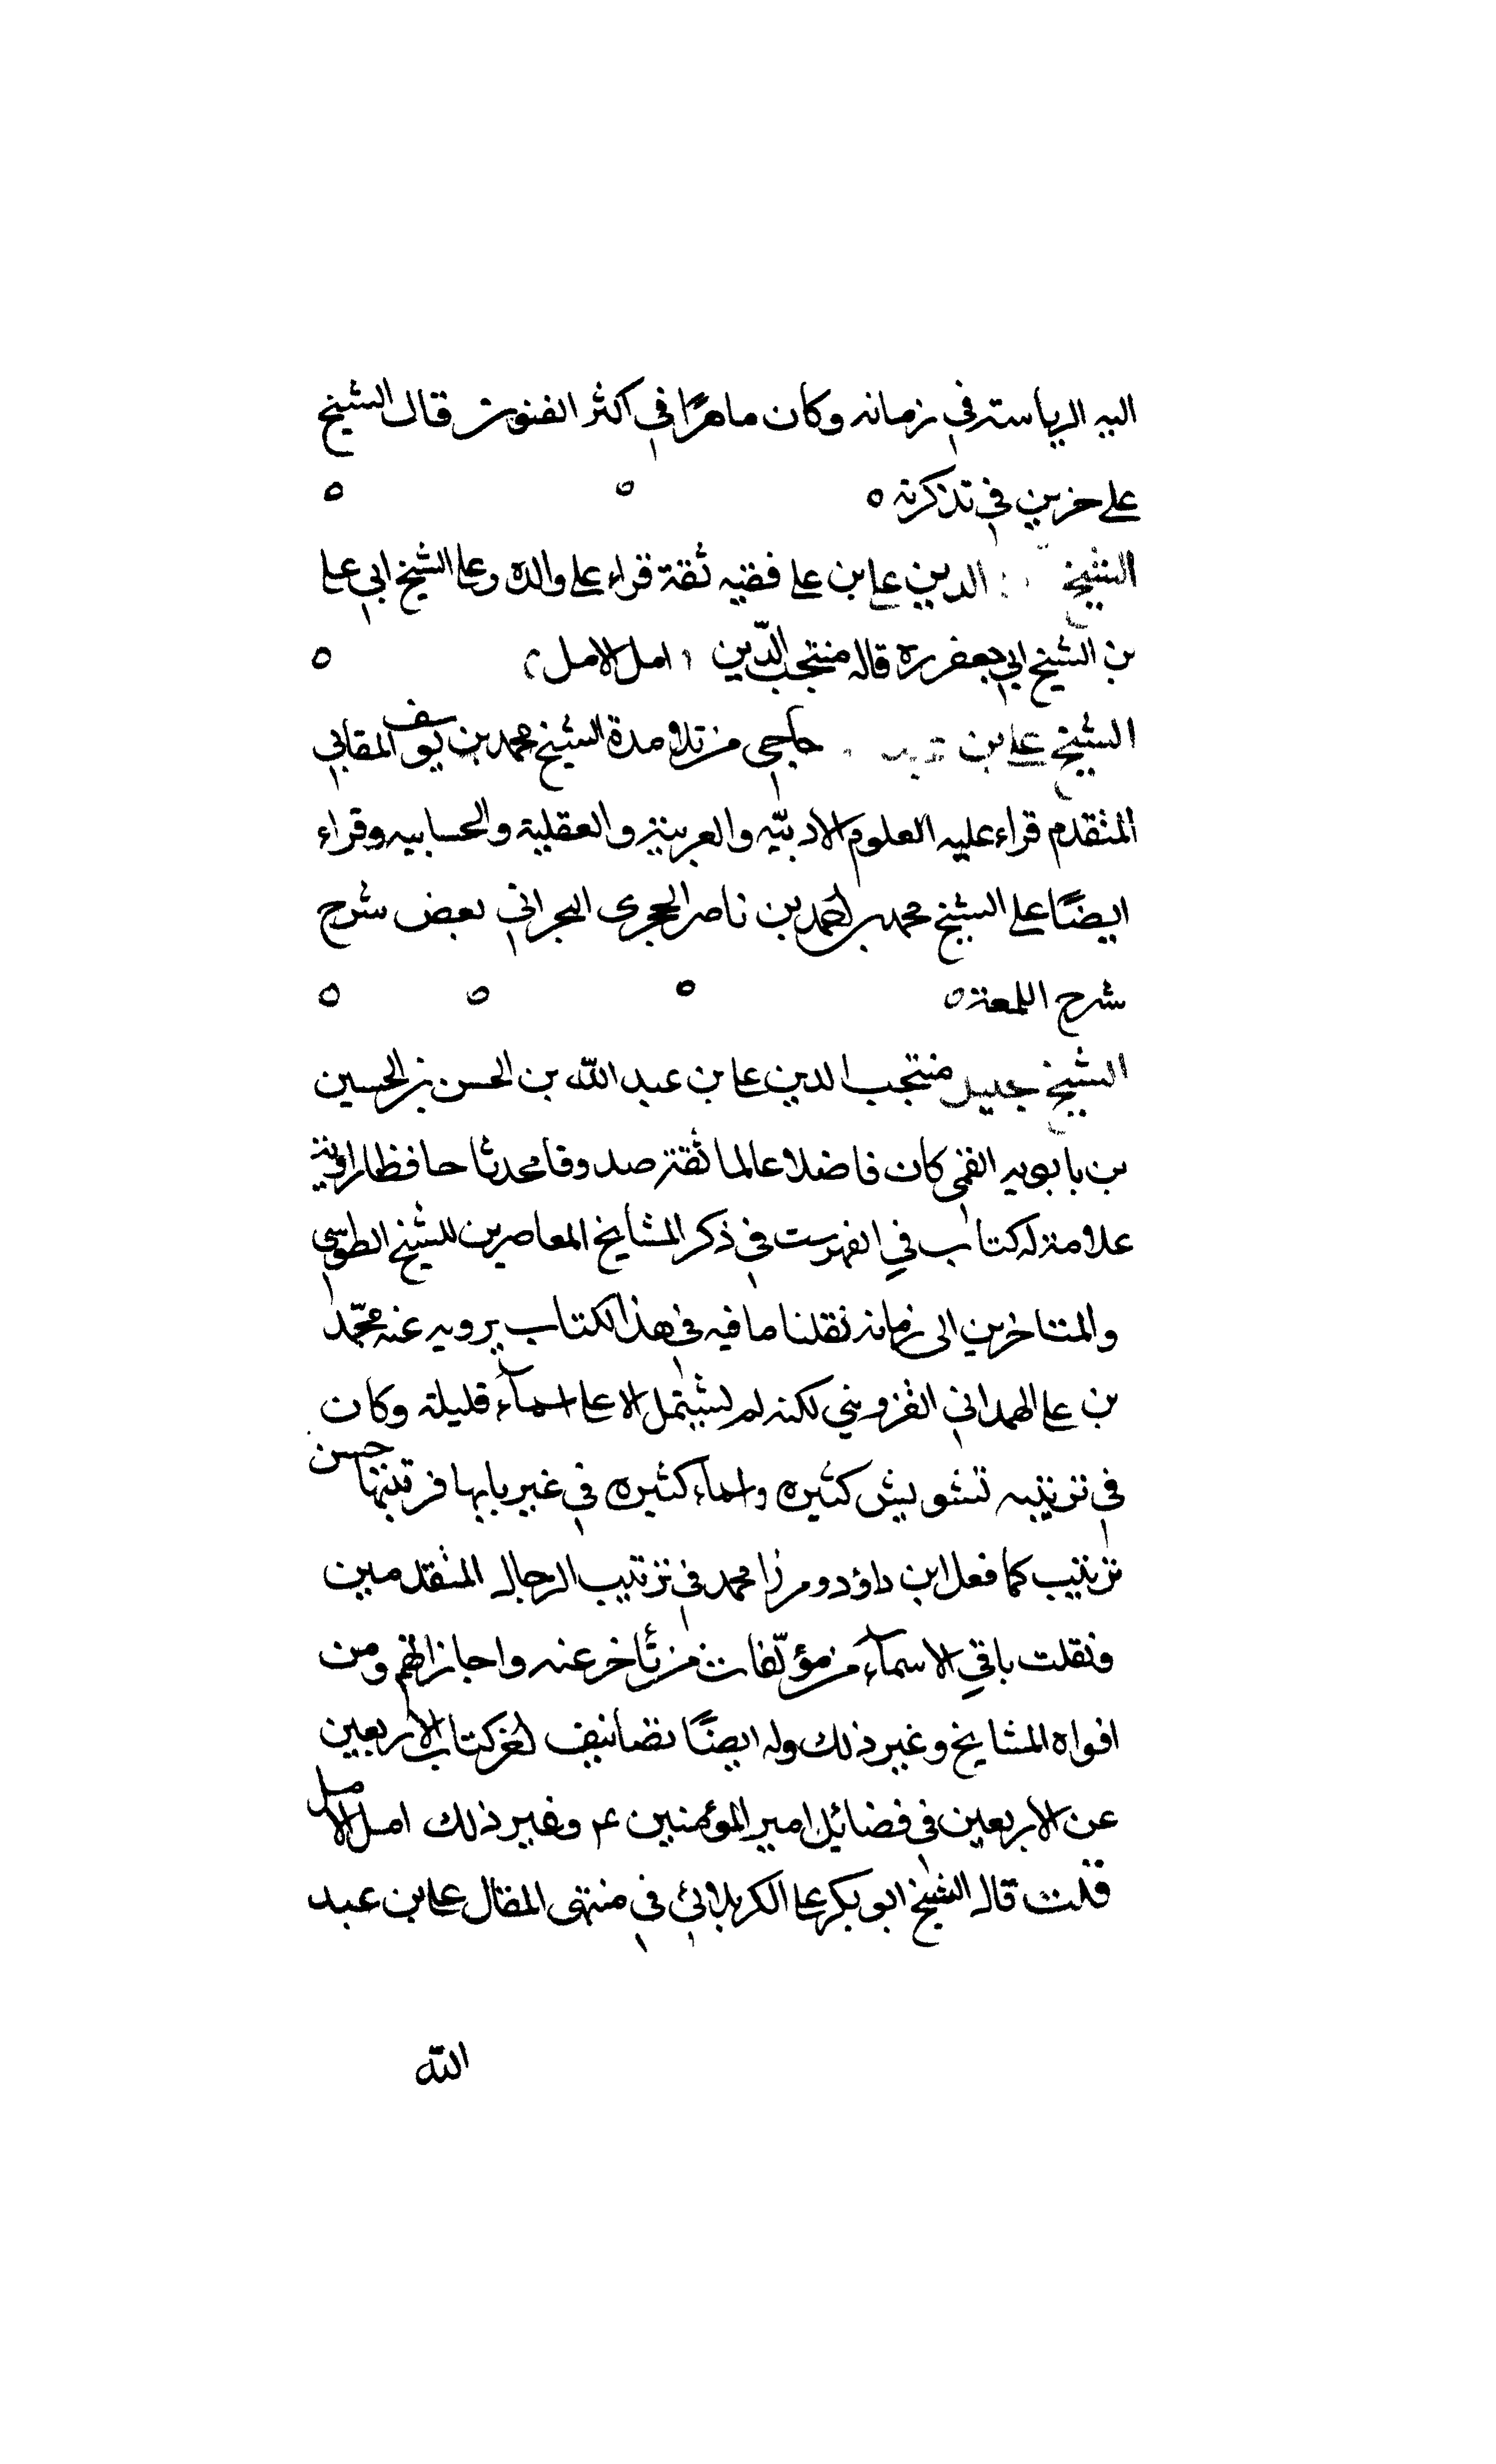 اليه الرياسة في زمانه وكان ماهرًا في اكثر الفنون قال الشيخ
علے حزين في تذكرته ه ه ه
الشيخ الدين علے بن علے فقيه ثقة قراء علے والده وعلے الشيخ ابي علے
بن الشيخ ابي جعفر ره قاله منتجب الدّين (امل الامل) ه
الشيخ علے بن حاجي من تلامدة الشيخ محمد بن يوسف المقابي
المتقدم قراء عليه العلوم الادبيّه والعربية والعقلية والحسابيه وقراء
ايضًا علے الشيخ محمد بن احمد بن ناصر الحجري البحراني بعض شرح
شرح اللمعة ه ه ه ه
الشيخ جليل منتجب الدين علے بن عبد الله بن الحسن بن الحسين
بن بابويه القمي كان فاضلا عالما ثقة صدوقا محدثا حافظا راوية
علامة له كتاب في الفهرست في ذكر المشايخ المعاصرين للشيخ الطوسي
والمتاخرين الى زمانه نقلنا ما فيه في هذا الكتاب يرويه عنه محمّد
بن علے الهمداني القزويني لكنه لم يشتمل الا علے اسمآء قليلة وكان
في ترتيبه تشويش كثيره واسماء كثيره في غير بابها فرتبتها حسن
ترتيب كما فعل ابن داؤد ومرزا محمد في ترتيب الرجال المتقدمين
ونقلت باقي الاسمآء من مؤلّفات من تأخر عنه واجازاتهم ومن
افواه المشايخ وغير ذلك وله ايضًا تصانيف اخر كتاب الاربعين
عن الاربعين في فضائل امير المؤمنين ع وغير ذلك امل الامل
قلت قال الشيخ ابو بكر علے الكربلائي في منتهى المقال علے بن عبد
الله